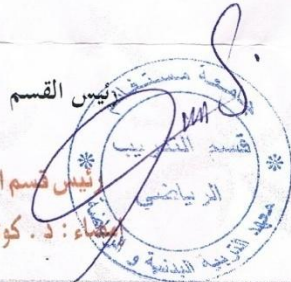 رئيس القسم
جامعة مستغانم
قسم التدريب
الرياضي
معهد التربية البدنية و
رئيس قسم
إمضاء : د . كو